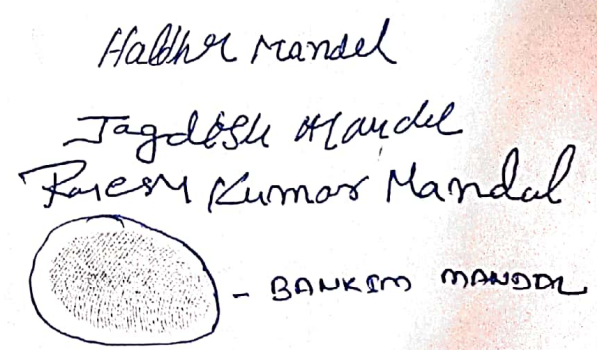 Haldhr Mandel
Jagdish Mandel
Rajesh Kumar Mandal
- BANKIM MANDAL